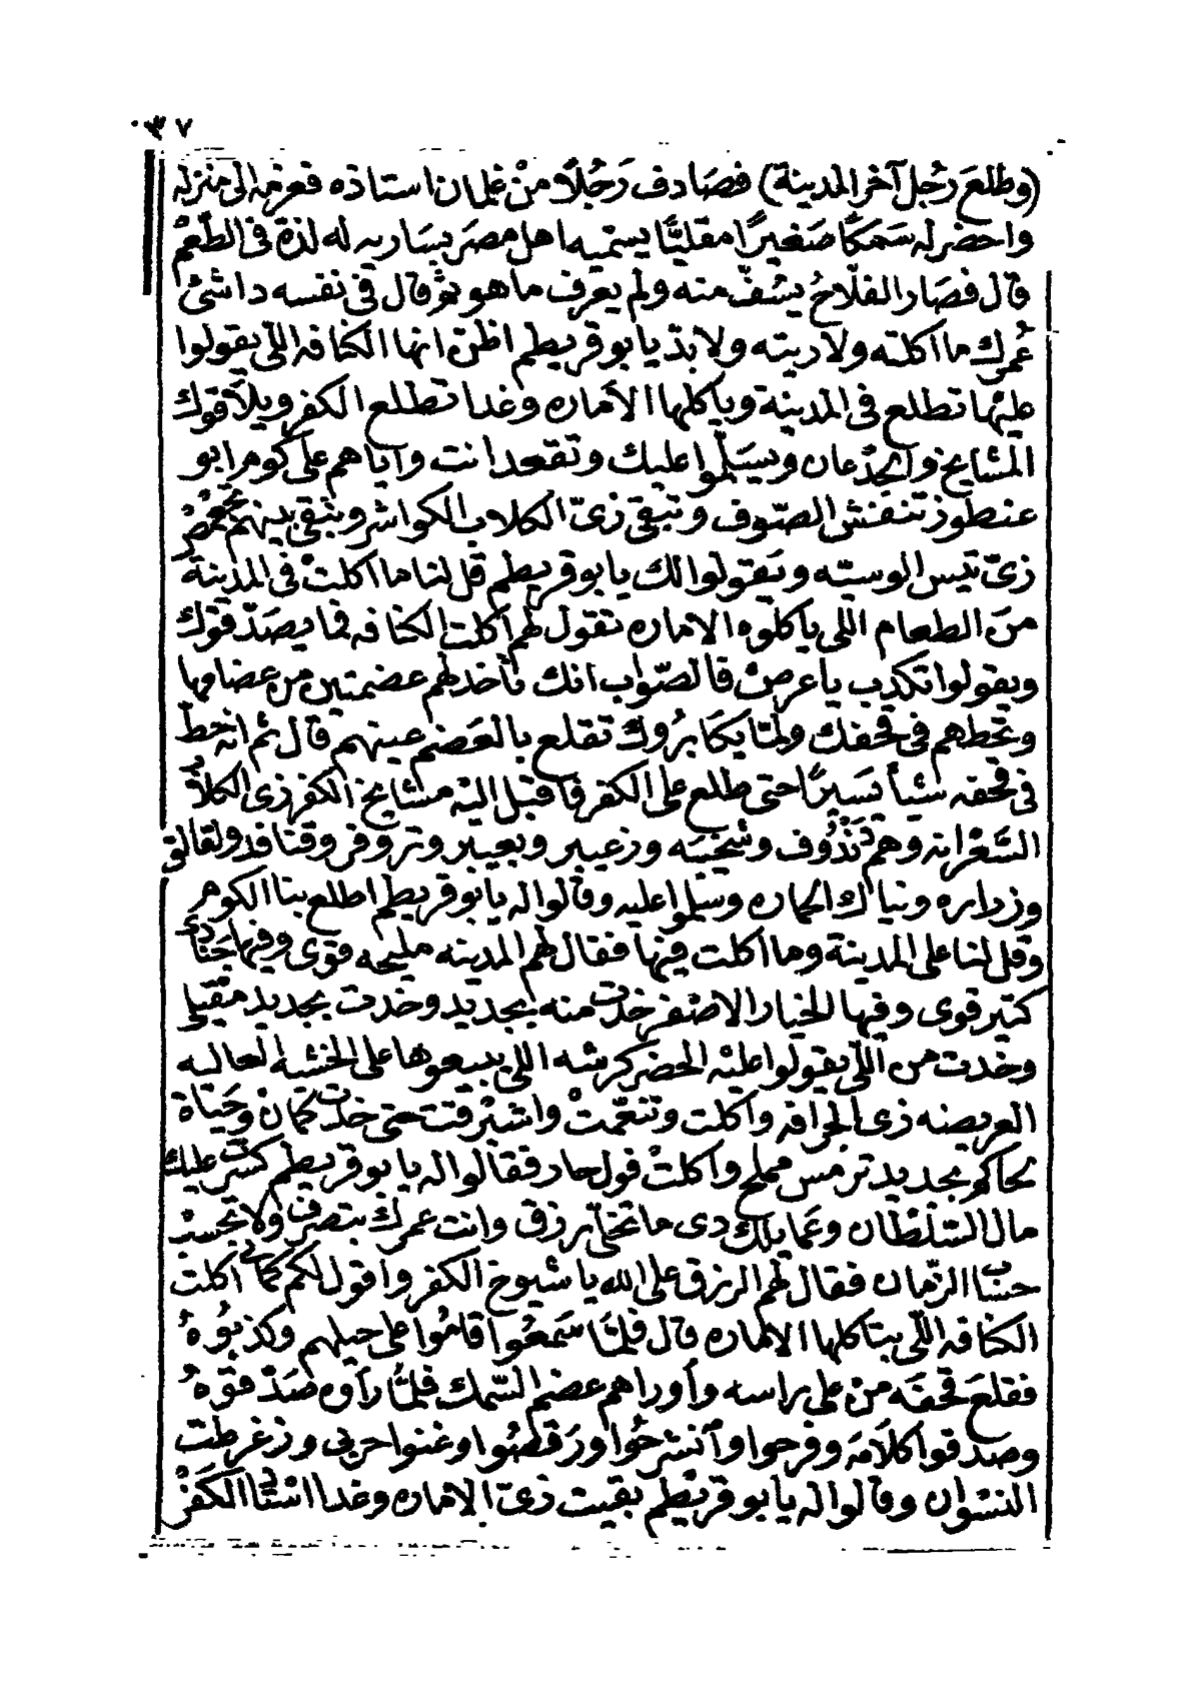 ٣٧
(وطلعَ رجُل آخر المدينة) فصَادف رَجُلاً منْ غلمان استاذه فعزمه الى منزله
واحضر له سَمَكًا صَغيرًا مقليًّا يسمّيه اهل مصَر بسَاريه له لذة فى الطَّعمْ
قال فصَار الفلّاحُ يسُفّ منه ولم يعرف ما هو ثم قال فى نفسه داشئ
عُمرك ما اكلته ولا ريته ولا بدّ يا بو قريطم اظن انها الكنافه اللى يقولوا
عليْها تطلع فى المدينة وياكلها الأماره وغدا تطلع الكفر ويلاقوك
المشايخ والجدْعان ويسَلّموا عليك وتقعد انت وايَّاهم على كوم ابو
عنطوز تنفش الصّوف وتبقى زىّ الكلاب الكواشر وتبقى بينهم
زىّ تيس الوسيّه ويَقولوا لك يا بو قريطم قل لنا ما اكلتْ فى المدينة
منَ الطعام اللى ياكلوه الاماره تقول لهم اكلت الكنافه فما يصَدّقوك
ويقولوا تكدب يا عرصْ فالصّواب انك تأخد لهم عضمتين من عضامها
وتحطهم فى قحفك ولمّا يكَابرُوك تقلع بالعَضم عينهم قال ثم انه حَط
فى قحفه شيأ يَسيرًا حتى طلع على الكفر فاقبل اليْه مشايخ الكفر زى الكلاب
السَّعْرانه وهم دَنْدُوف وشخيبَه وزعيبر وبعيبر وتزوفر وقنافد ولقالق
وزداره ونياك الحماره وسلموا عليه وقالوا له يا بو قريطم اطلع بنا الكوم
وقل لنا على المدينة وما اكلت فيها فقال لهم المدينه مليحه قوى وفيها جنادى
كتير قوى وفيها الخيار الاصْفر خدت منه بجديد وخدت بجديد مقيلى
وخدت من اللّى يقولوا عليْه الحضر كرشه اللى يبيعوها على الخشبه العاليه
العريضه زى الجرافه واكلت وتنعّمتْ واشبْرقت حتى خدت كمان وحَياة
لحاكم بجديد ترمس مملّح واكلتْ فول حار فقالوا له يا بو قريطم كترت عليك
مال السّلطان وعمايلك دى ما تخلّى رزق وانت عمرك بتصرف ولا تحسبْ
حسَاب الزمان فقال لهم الرزق على الله يا شيوخ الكفر واقول لكم كمانى اكلت
الكنافه اللّى بتاكلها الاماره قال فلمَّا سَمعُوا قامُوا على حيلهم وكذبُوهُ
فقلعَ قحفَه منْ على راسه وأوراهم عضم السّمك فلمَّا رأوه صَدّقوهُ
وصدقوا كلاَمَه وفرحوا وانشرحُوا ورَقصُوا وغنوا حربى وزغرطت
النسْوان وقالوا له يا بو قريْطم بقيت زىّ الاماره وغدا الكَفرْ